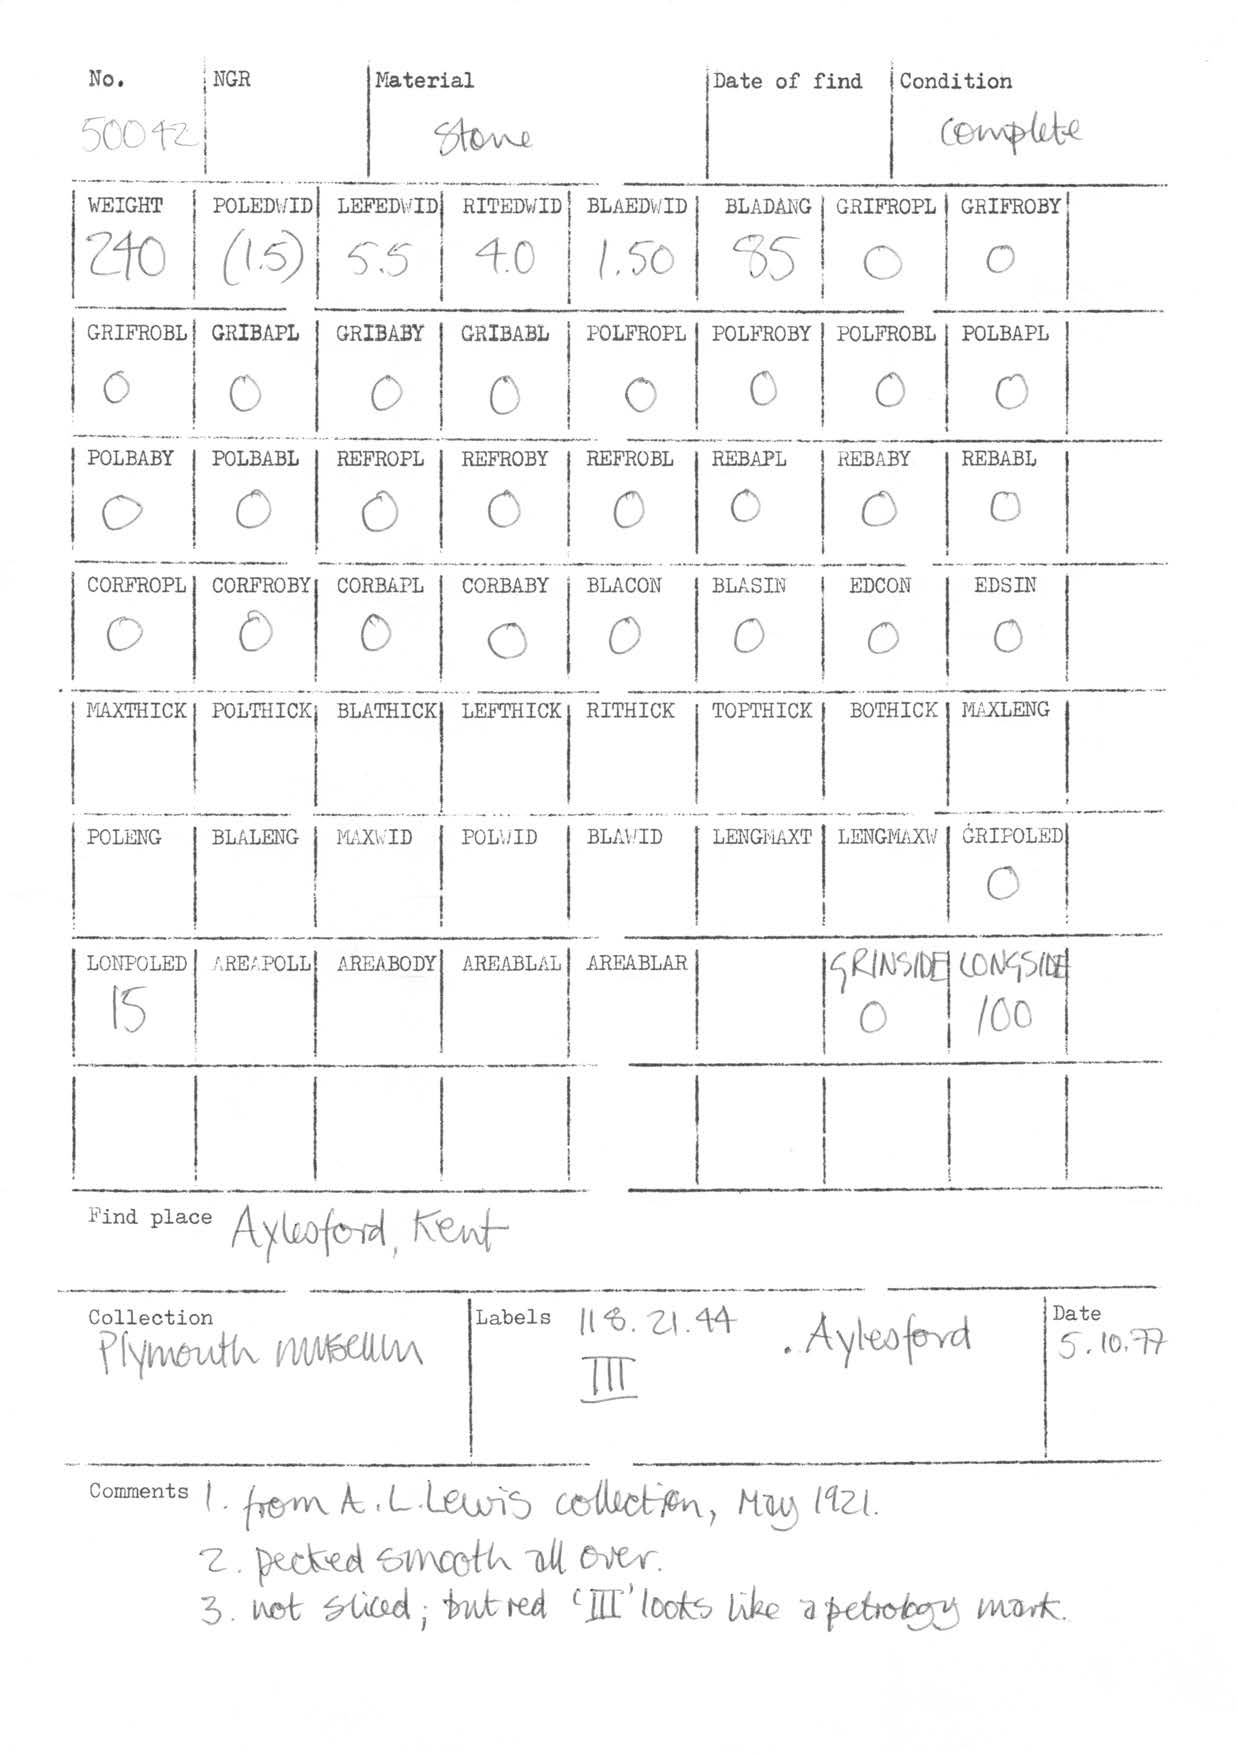 No. NGR Material Date of find Condition
50042 Stone complete
WEIGHT POLEDWID LEFEDWID RITEDWID BLAEDWID BLADANG GRIFROPL GRIFROBY
240 (1.5) 5.5 4.0 1.50 85 0 0
GRIFROBL GRIBAPL GRIBABY GRIBABL POLFROPL POLFROBY POLFROBL POLBAPL
0 0 0 0 0 0 0 0
POLBABY POLBABL REFROPL REFROBY REFROBL REBAPL REBABY REBABL
0 0 0 0 0 0 0 0
CORFROPL CORFROBY CORBAPL CORBABY BLACON BLASIN EDCON EDSIN
0 0 0 0 0 0 0 0
MAXTHICK POLTHICK BLATHICK LEFTHICK RITHICK TOPTHICK BOTHICK MAXLENG
POLENG BLALENG MAXWID POLWID BLAWID LENGMAXT LENGMAXW GRIPOLED
0
LONPOLED AREAPOLL AREABODY AREABLAL AREABLAR GRINSIDE LONGSIDE
15 0 100
Find place Aylesford, Kent
Collection Labels 118.21.44 . Aylesford Date
Plymouth museum III 5.10.77
Comments 1. from A.L.Lewis collection, May 1921.
2. pecked smooth all over.
3. not sliced; but red 'III' looks like a petrology mark.